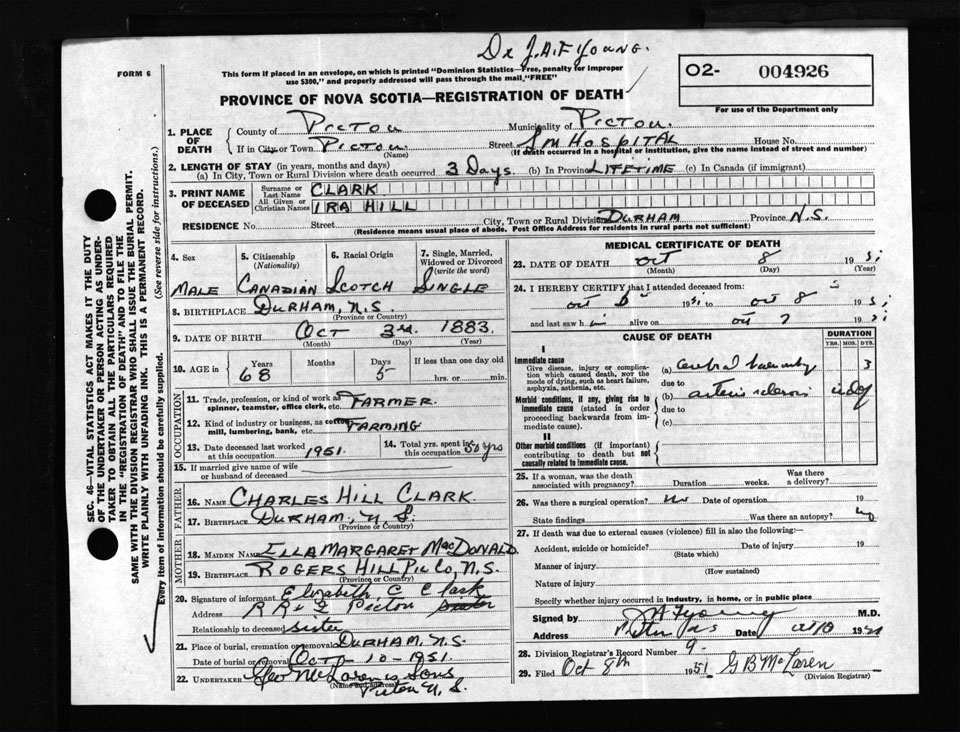 Dr J.A.F Young.
FORM 6
This form if placed in an envelope, on which is printed "Dominion Statistics—Free, penalty for improper
use $300," and properly addressed will pass through the mail, "FREE"
O2- 004926
For use of the Department only
PROVINCE OF NOVA SCOTIA—REGISTRATION OF DEATH
1. PLACE OF DEATH
County of PICTOU Municipality of PICTOU.
If in City or Town PICTOU (Name) Street S M HOSPITAL House No.
(If death occurred in a hospital or institution, give the name instead of street and number)
2. LENGTH OF STAY (in years, months and days)
(a) In City, Town or Rural Division where death occurred 3 Days. (b) In Province LIFETIME (c) In Canada (if immigrant)
3. PRINT NAME OF DECEASED
Surname or Last Name CLARK
All Given or Christian Names IRA HILL
RESIDENCE No. Street City, Town or Rural Division DURHAM Province N.S.
(Residence means usual place of abode. Post Office Address for residents in rural parts not sufficient)
4. Sex MALE
5. Citizenship (Nationality) CANADIAN
6. Racial Origin SCOTCH
7. Single, Married, Widowed or Divorced (write the word) SINGLE
8. BIRTHPLACE DURHAM, N.S.
(Province or Country)
9. DATE OF BIRTH OCT 3rd. 1883.
(Month) (Day) (Year)
10. AGE IN Years 68 Months Days 5 If less than one day old
hrs. or min.
OCCUPATION
11. Trade, profession, or kind of work as spinner, teamster, office clerk, etc. FARMER.
12. Kind of industry or business, as cotton mill, lumbering, bank, etc. FARMING
13. Date deceased last worked at this occupation 1951.
14. Total yrs. spent in this occupation 50 yrs
15. If married give name of wife
or husband of deceased
FATHER
16. NAME CHARLES HILL CLARK
17. BIRTHPLACE DURHAM, N.S.
(Province or Country)
MOTHER
18. MAIDEN NAME ELLA MARGARET MACDONALD
19. BIRTHPLACE ROGERS HILL PIC CO, N.S.
(Province or Country)
20. Signature of informant Elizabeth C Clark
Address R R # 2 Pictou
Relationship to deceased sister
21. Place of burial, cremation or removal DURHAM, N.S.
Date of burial or removal Oct - 10 - 1951.
22. UNDERTAKER Geo McLaren & Sons
(Name and address)
Pictou N.S.
MEDICAL CERTIFICATE OF DEATH
23. DATE OF DEATH Oct 8 1951
(Month) (Day) (Year)
24. I HEREBY CERTIFY that I attended deceased from:
Oct 6 1951 to Oct 8 1951
and last saw him alive on Oct 7 1951
CAUSE OF DEATH
DURATION
YRS. MOS. DYS.
I
Immediate cause
Give disease, injury or complication which caused death, not the mode of dying, such as heart failure, asphyxia, asthenia, etc.
(a) Cerebral 3
due to
Morbid conditions, if any, giving rise to immediate cause (stated in order proceeding backwards from immediate cause).
(b) arterio sclerosis indef
due to
(c)
II
Other morbid conditions (if important) contributing to death but not causally related to immediate cause.
25. If a woman, was the death associated with pregnancy? Duration weeks. Was there a delivery?
26. Was there a surgical operation? no Date of operation 19
State findings Was there an autopsy? no
27. If death was due to external causes (violence) fill in also the following:
Accident, suicide or homicide? Date of injury 19
(State which)
Manner of injury
(How sustained)
Nature of injury
Specify whether injury occurred in industry, in home, or in public place
Signed by J A F Young M.D.
Address Pictou NS Date 1951
28. Division Registrar's Record Number 9-
29. Filed Oct 8th 1951 G B McLaren
(Division Registrar)
SEC. 46—VITAL STATISTICS ACT MAKES IT THE DUTY
OF THE UNDERTAKER OR PERSON ACTING AS UNDERTAKER
TO OBTAIN ALL THE PARTICULARS REQUIRED
IN THE "REGISTRATION OF DEATH" AND TO FILE THE
SAME WITH THE DIVISION REGISTRAR WHO SHALL ISSUE THE BURIAL PERMIT.
WRITE PLAINLY WITH UNFADING INK. THIS IS A PERMANENT RECORD.
Every item of information should be carefully supplied. (See reverse side for instructions.)